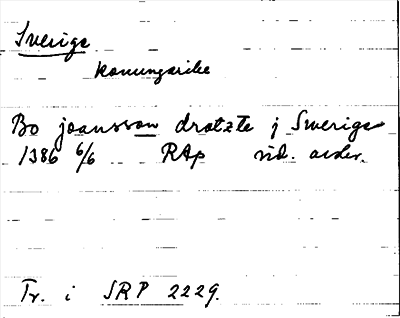 Sverige
konungarike
Bo joansson drotzte j Swerige
1386 6/6 RAp vid. avskr.
Tr. i SRP 2229.